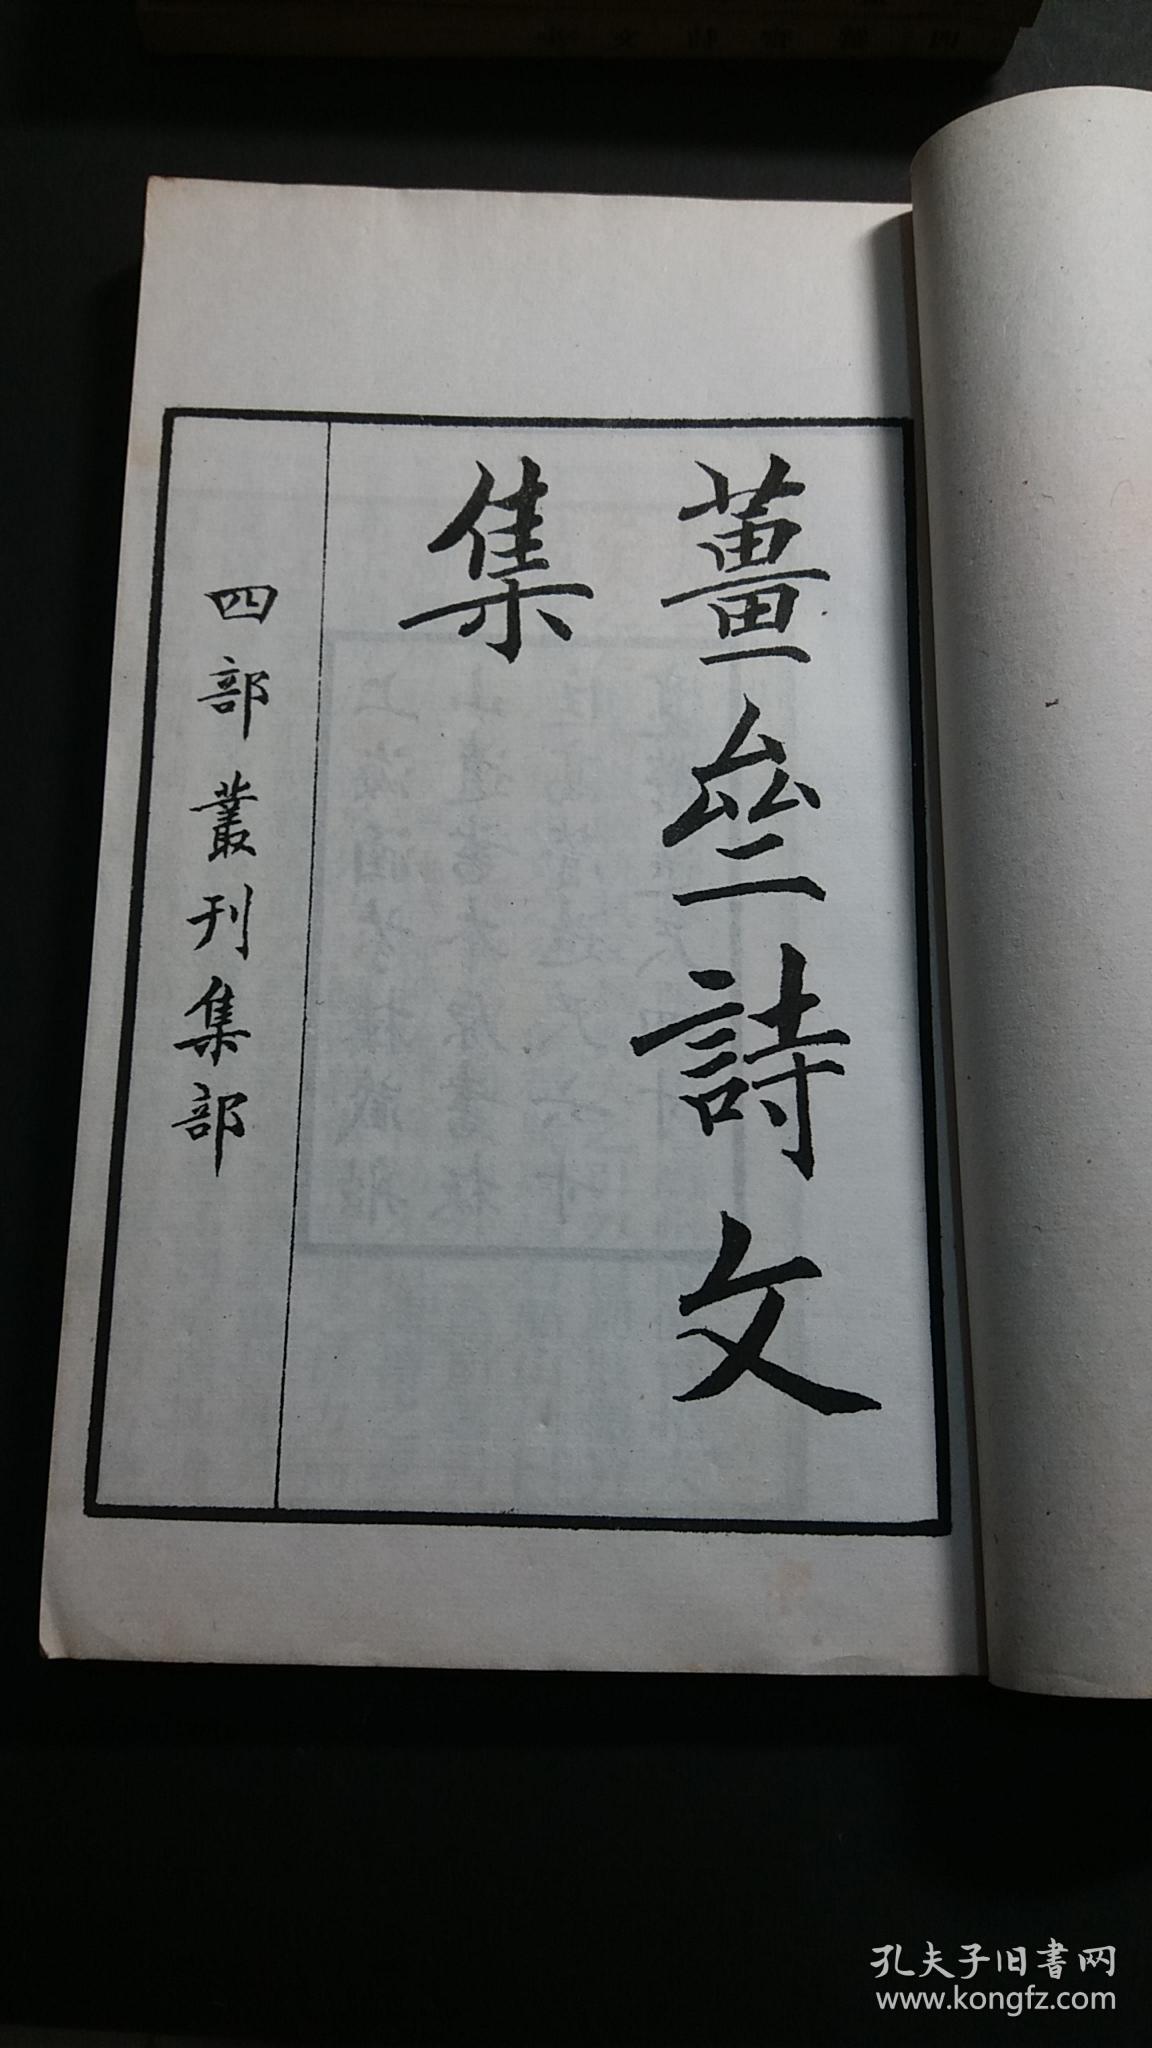 薑亝詩文
集
四部叢刊集部
孔夫子旧書网
www.kongfz.com